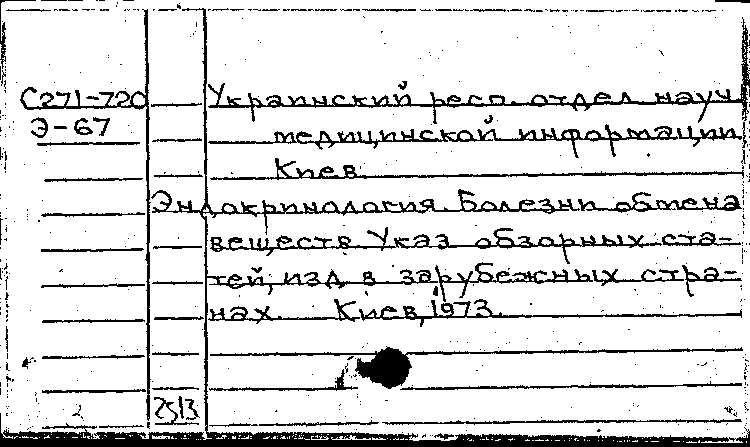 С271-720 Украинский респ. отдел науч.
Э-67 медицинской информации.
Киев.
Эндокринология. Болезни обмена
веществ. Указ. обзорных ста-
тей, изд. в зарубежных стра-
нах. Киев, 1973.
2513